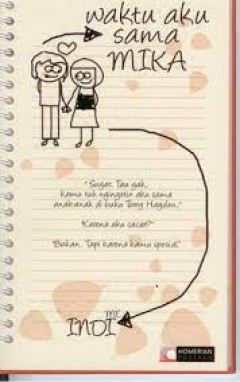 waktu aku
sama
MIKA
"Sugar. Tau gak,
kamu tuh ngingetin aku sama
anak-anak di buku Torey Hayden."
"Karena aku cacat?"
"Bukan. Tapi karena kamu spesial."
ME
INDI
HOMERIAN
PUSTAKA